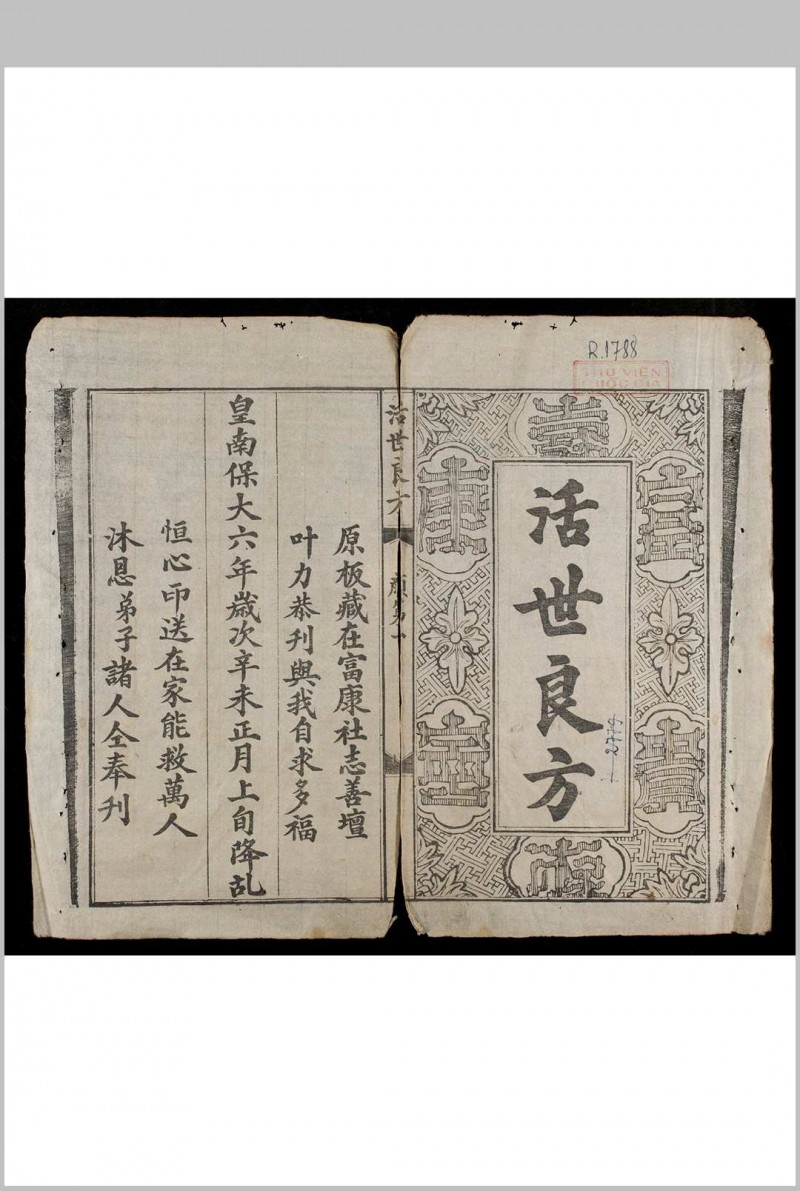 R.1788
THƯ VIỆN
QUỐC GIA
活世良方
活世良方
顔第一
原板藏在富康社志善壇
叶力恭刊與我自求多福
皇南保大六年歲次辛未正月上旬降乩
恒心印送在家能救萬人
沐恩弟子諸人仝奉刊